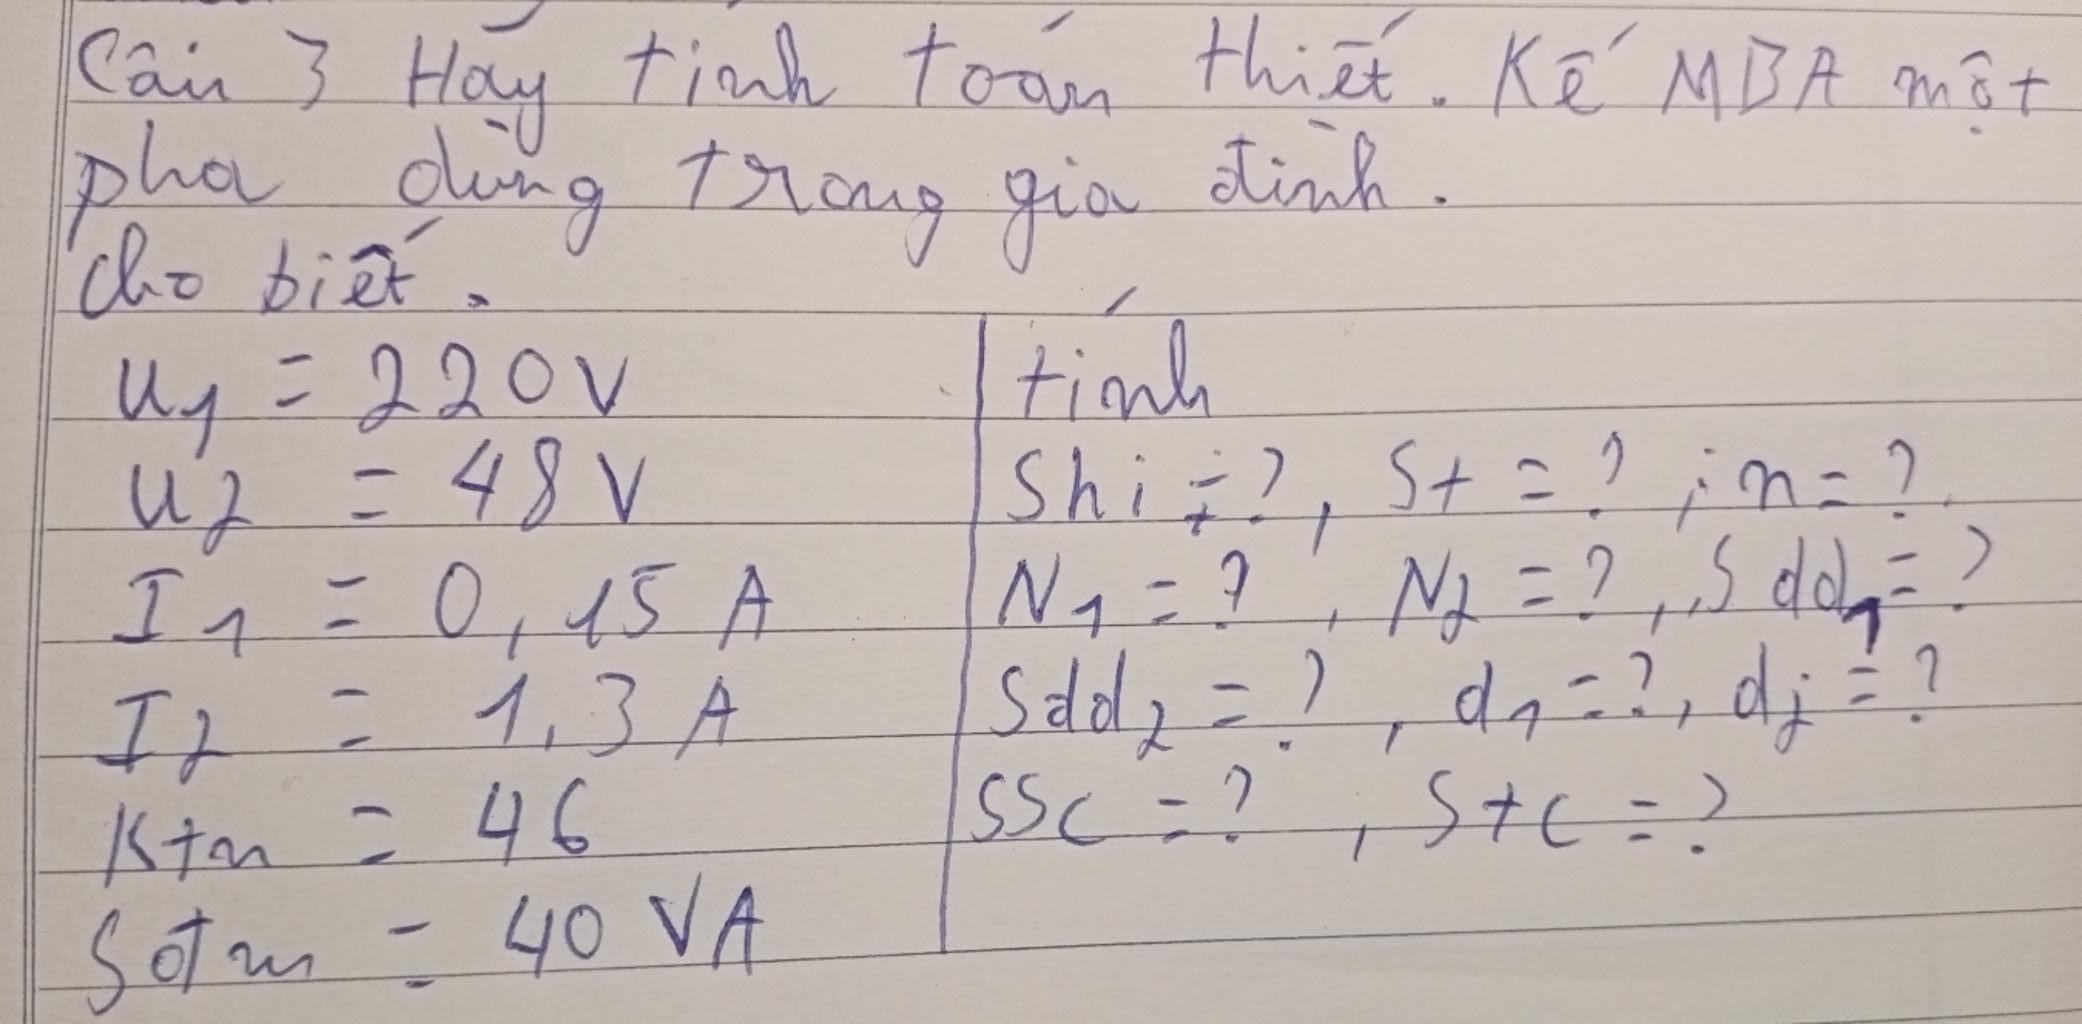 Câu 3 Hãy tính toán thiết. Kế MBA một
pha dùng trong gia đình.
Cho biết.
U1 = 220V
U2 = 48V
I1 = 0,15 A
I2 = 1,3 A
Ktn = 46
Sđm = 40 VA
tính
Shi = ?, St = ? ; n = ?
N1 = ?, N2 = ?, Sdd1 = ?
Sdd2 = ?, d1 = ?, d2 = ?
SSc = ?, Stc = ?